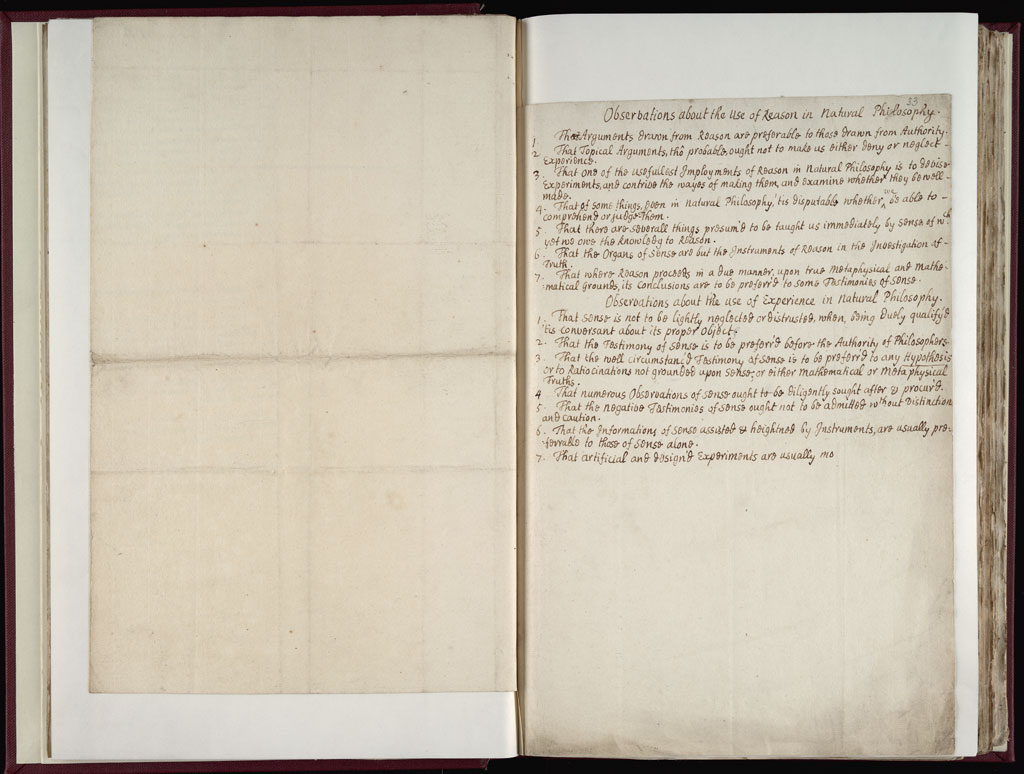 33
Observations about the Use of Reason in Natural Philosophy.
1. Arguments drawn from Reason are preferable to those drawn from Authority.
2. That Topical Arguments, tho' probable, ought not to make us either deny or neglect
Experience.
3. That One of the usefullest Imployments of Reason in Natural Philosophy is to devise
Experiments, and contrive the wayes of making them, and examine whether they be well
made.
4. That of some things, even in Natural Philosophy, 'tis disputable whether we be able to
comprehend or judge them.
5. That there are severall things presum'd to be taught us immediately by Sense of wch
yet we owe the knowledg to Reason.
6. That the Organs of Sense are but the Instruments of Reason in the Investigation of
Truth.
7. That where Reason proceeds in a due manner, upon true Metaphysical and Mathe-
matical Grounds, its Conclusions are to be preferr'd to some Testimonies of Sense.
Observations about the use of Experience in Natural Philosophy.
1. That Sense is not to be lightly neglected or distrusted, when, being duely qualify'd
'tis conversant about its proper Object.
2. That the Testimony of Sense is to be preferr'd before the Authority of Philosophers.
3. That the well circumstanc'd Testimony of Sense is to be preferr'd to any Hypothesis
or to Ratiocinations not grounded upon Sense, or either Mathematical or Metaphysical
Truths.
4. That numerous Observations of Sense ought to be diligently sought after & procur'd.
5. That the Negative Testimonies of Sense ought not to be admitted wthout Distinction
and Caution.
6. That the Informations of Sense assisted & heightned by Instruments, are usually pre-
ferrable to those of Sense alone.
7. That artificial and design'd Experiments are usually mo